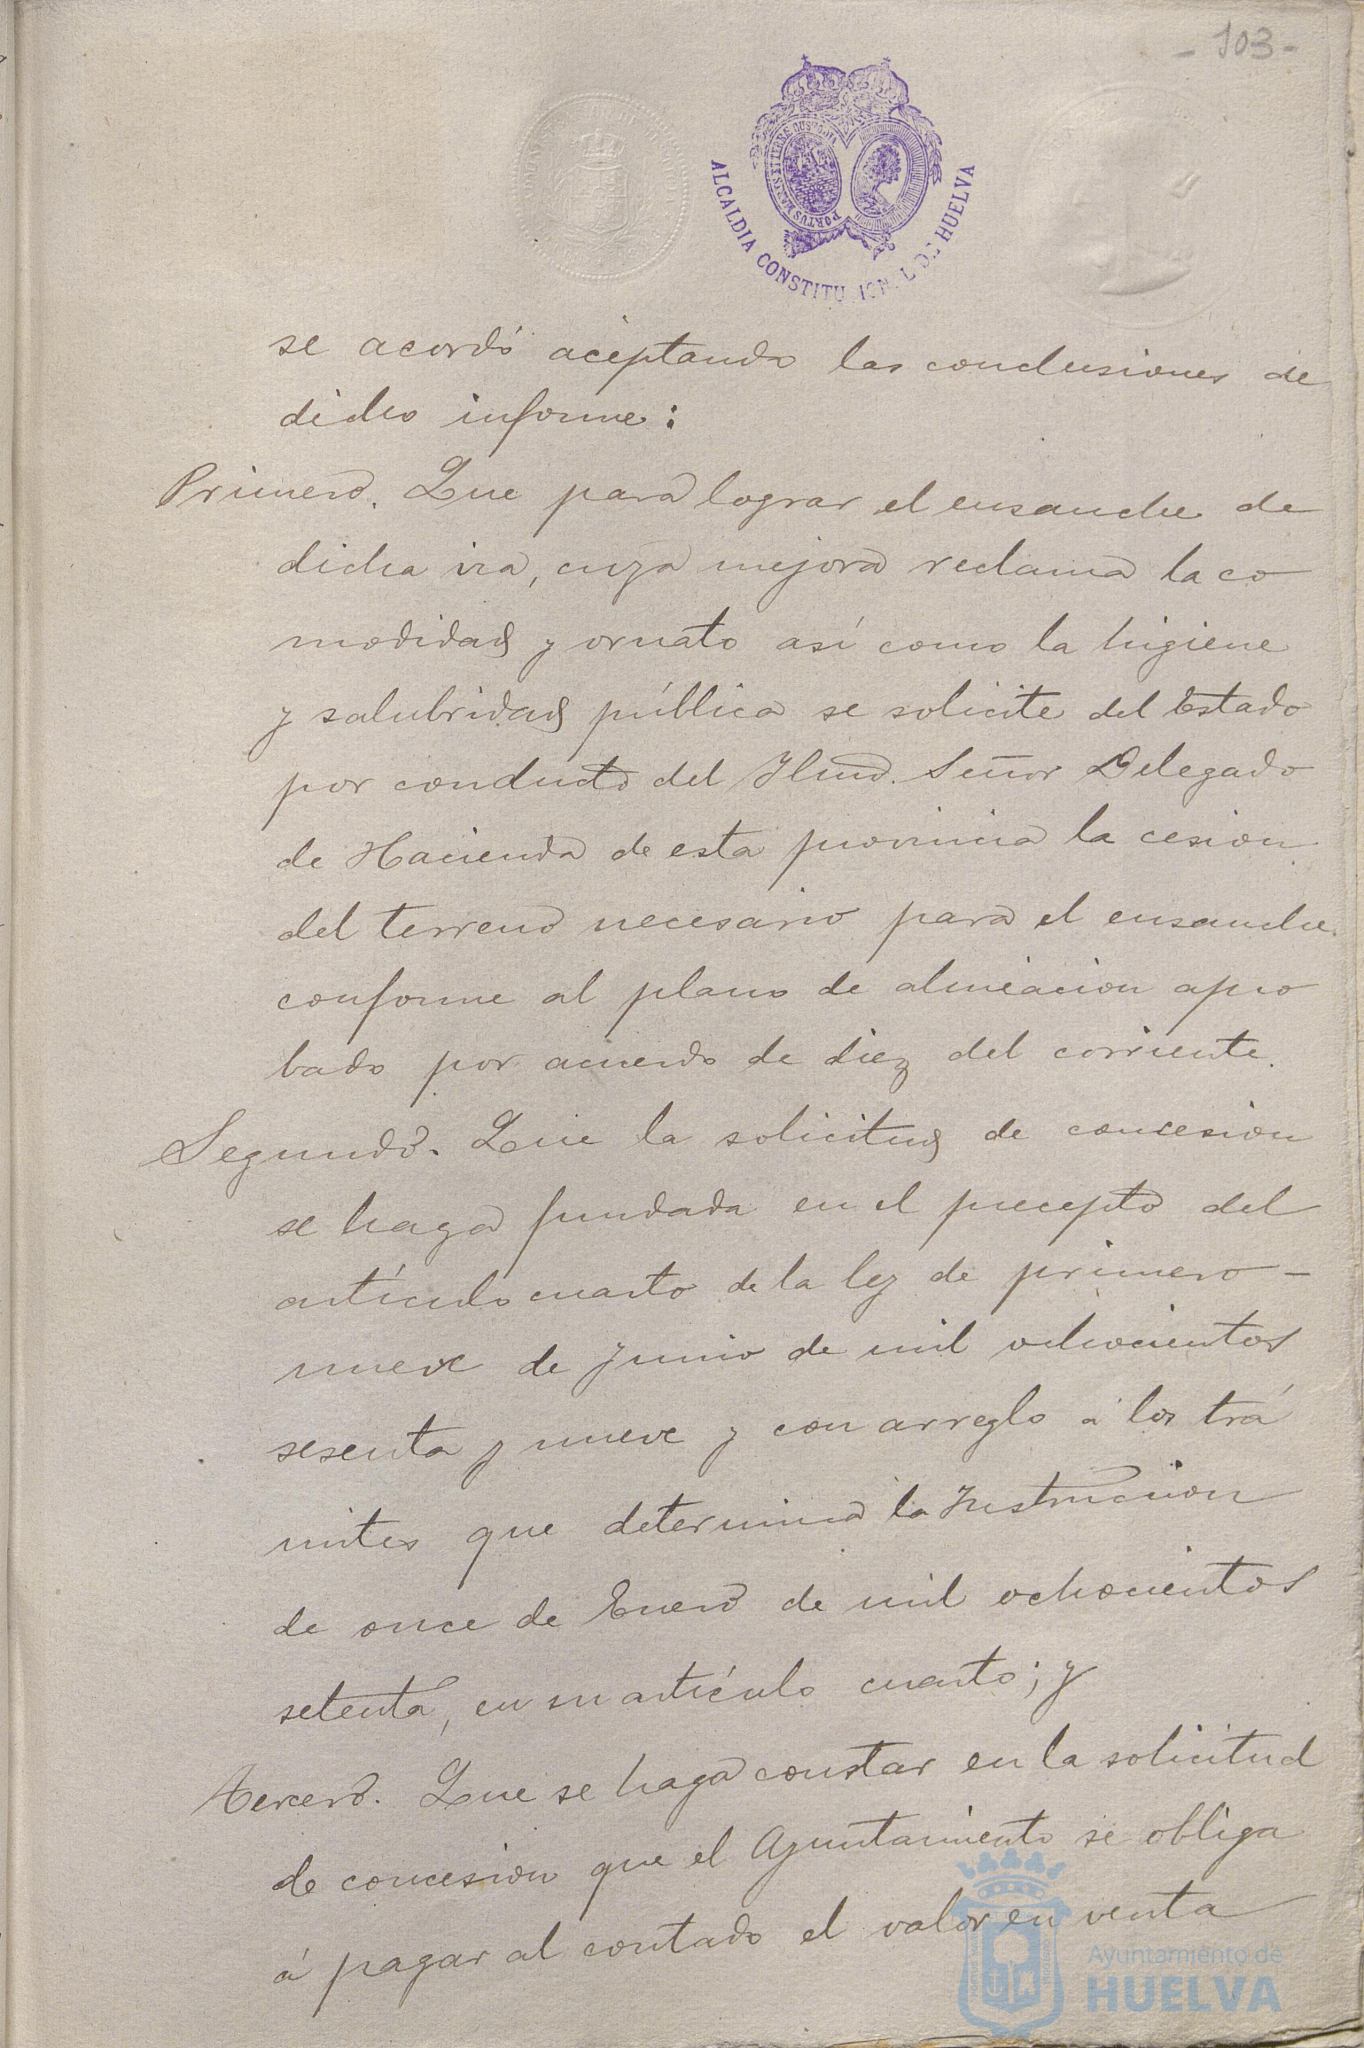 - 103 -
PORTUS MARIS ET TERRE CUSTODIA
ALCALDIA CONSTITUCIONAL DE HUELVA
se acordó aceptando las conclusiones de
dicho informe:
Primero. Que para lograr el ensanche de
dicha via, cuya mejora reclama la co
modidad y ornato así como la higiene
y salubridad pública se solicite del Estado
por conducto del Ylmo. Señor Delegado
de Hacienda de esta provincia la cesion
del terreno necesario para el ensanche
conforme al plano de alineacion apro
bado por acuerdo de diez del corriente.
Segundo. Que la solicitud de concesion
se haga fundada en el precepto del
artículo cuarto de la ley de primero -
nueve de Junio de mil ochocientos
sesenta y nueve y con arreglo á los trá
mites que determina la Instruccion
de once de Enero de mil ochocientos
setenta, en su artículo cuarto; y
tercero. Que se haga constar en la solicitud
de concesion que el Ayuntamiento se obliga
á pagar al contado el valor en venta
Ayuntamiento de
HUELVA